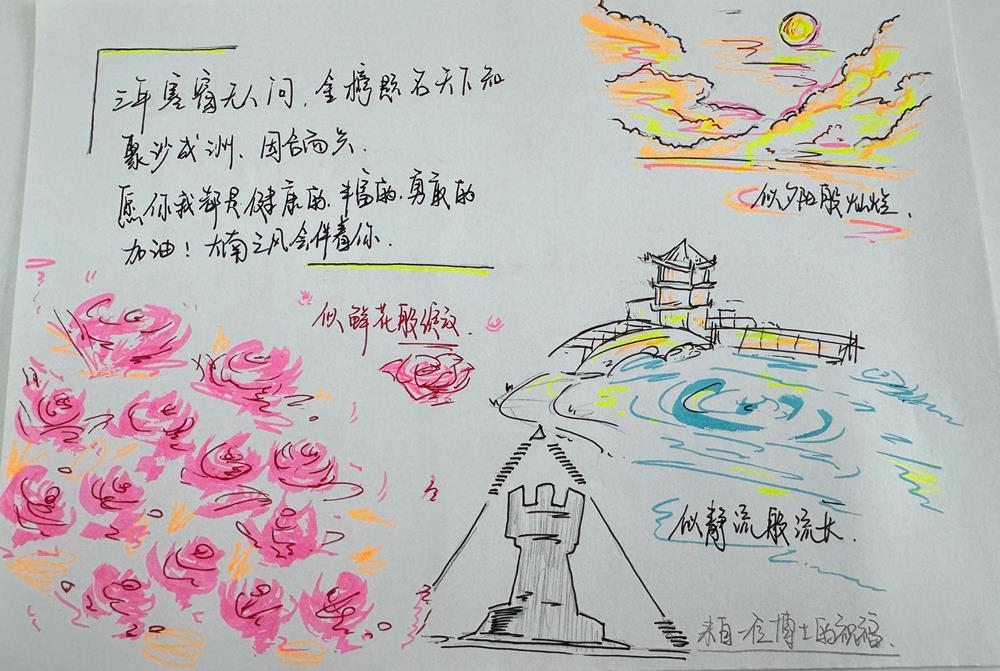 三年寒窗无人问,金榜题名天下知
聚沙成洲、因台而兴.
愿你我都是健康的.丰富的.勇敢的
加油!大南之风会伴着你.
似夕阳般灿烂.
似鲜花般绽放.
似静流般流长.
来自一位博士的祝福.